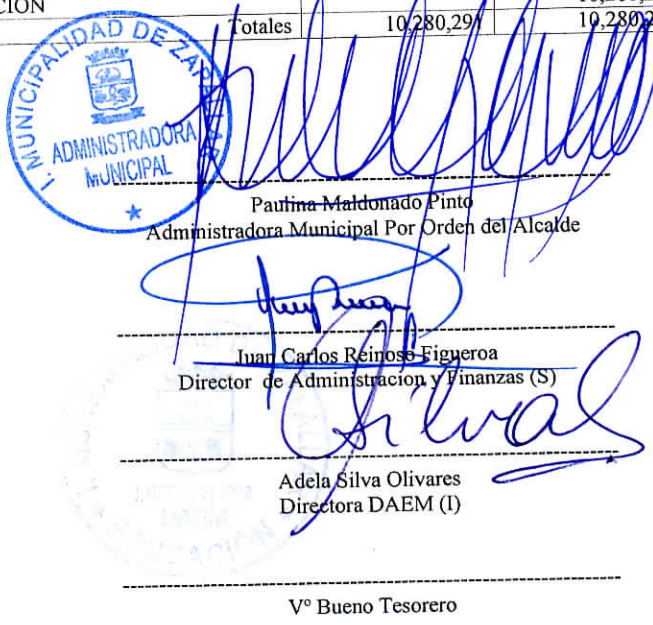 CION
Totales 10,280,291 10,280,2
I. MUNICIPALIDAD DE ZAPALLAR
ADMINISTRADORA
MUNICIPAL
Paulina Maldonado Pinto
Administradora Municipal Por Orden del Alcalde
Juan Carlos Reinoso Figueroa
Director de Administracion y Finanzas (S)
Adela Silva Olivares
Directora DAEM (I)
Vº Bueno Tesorero